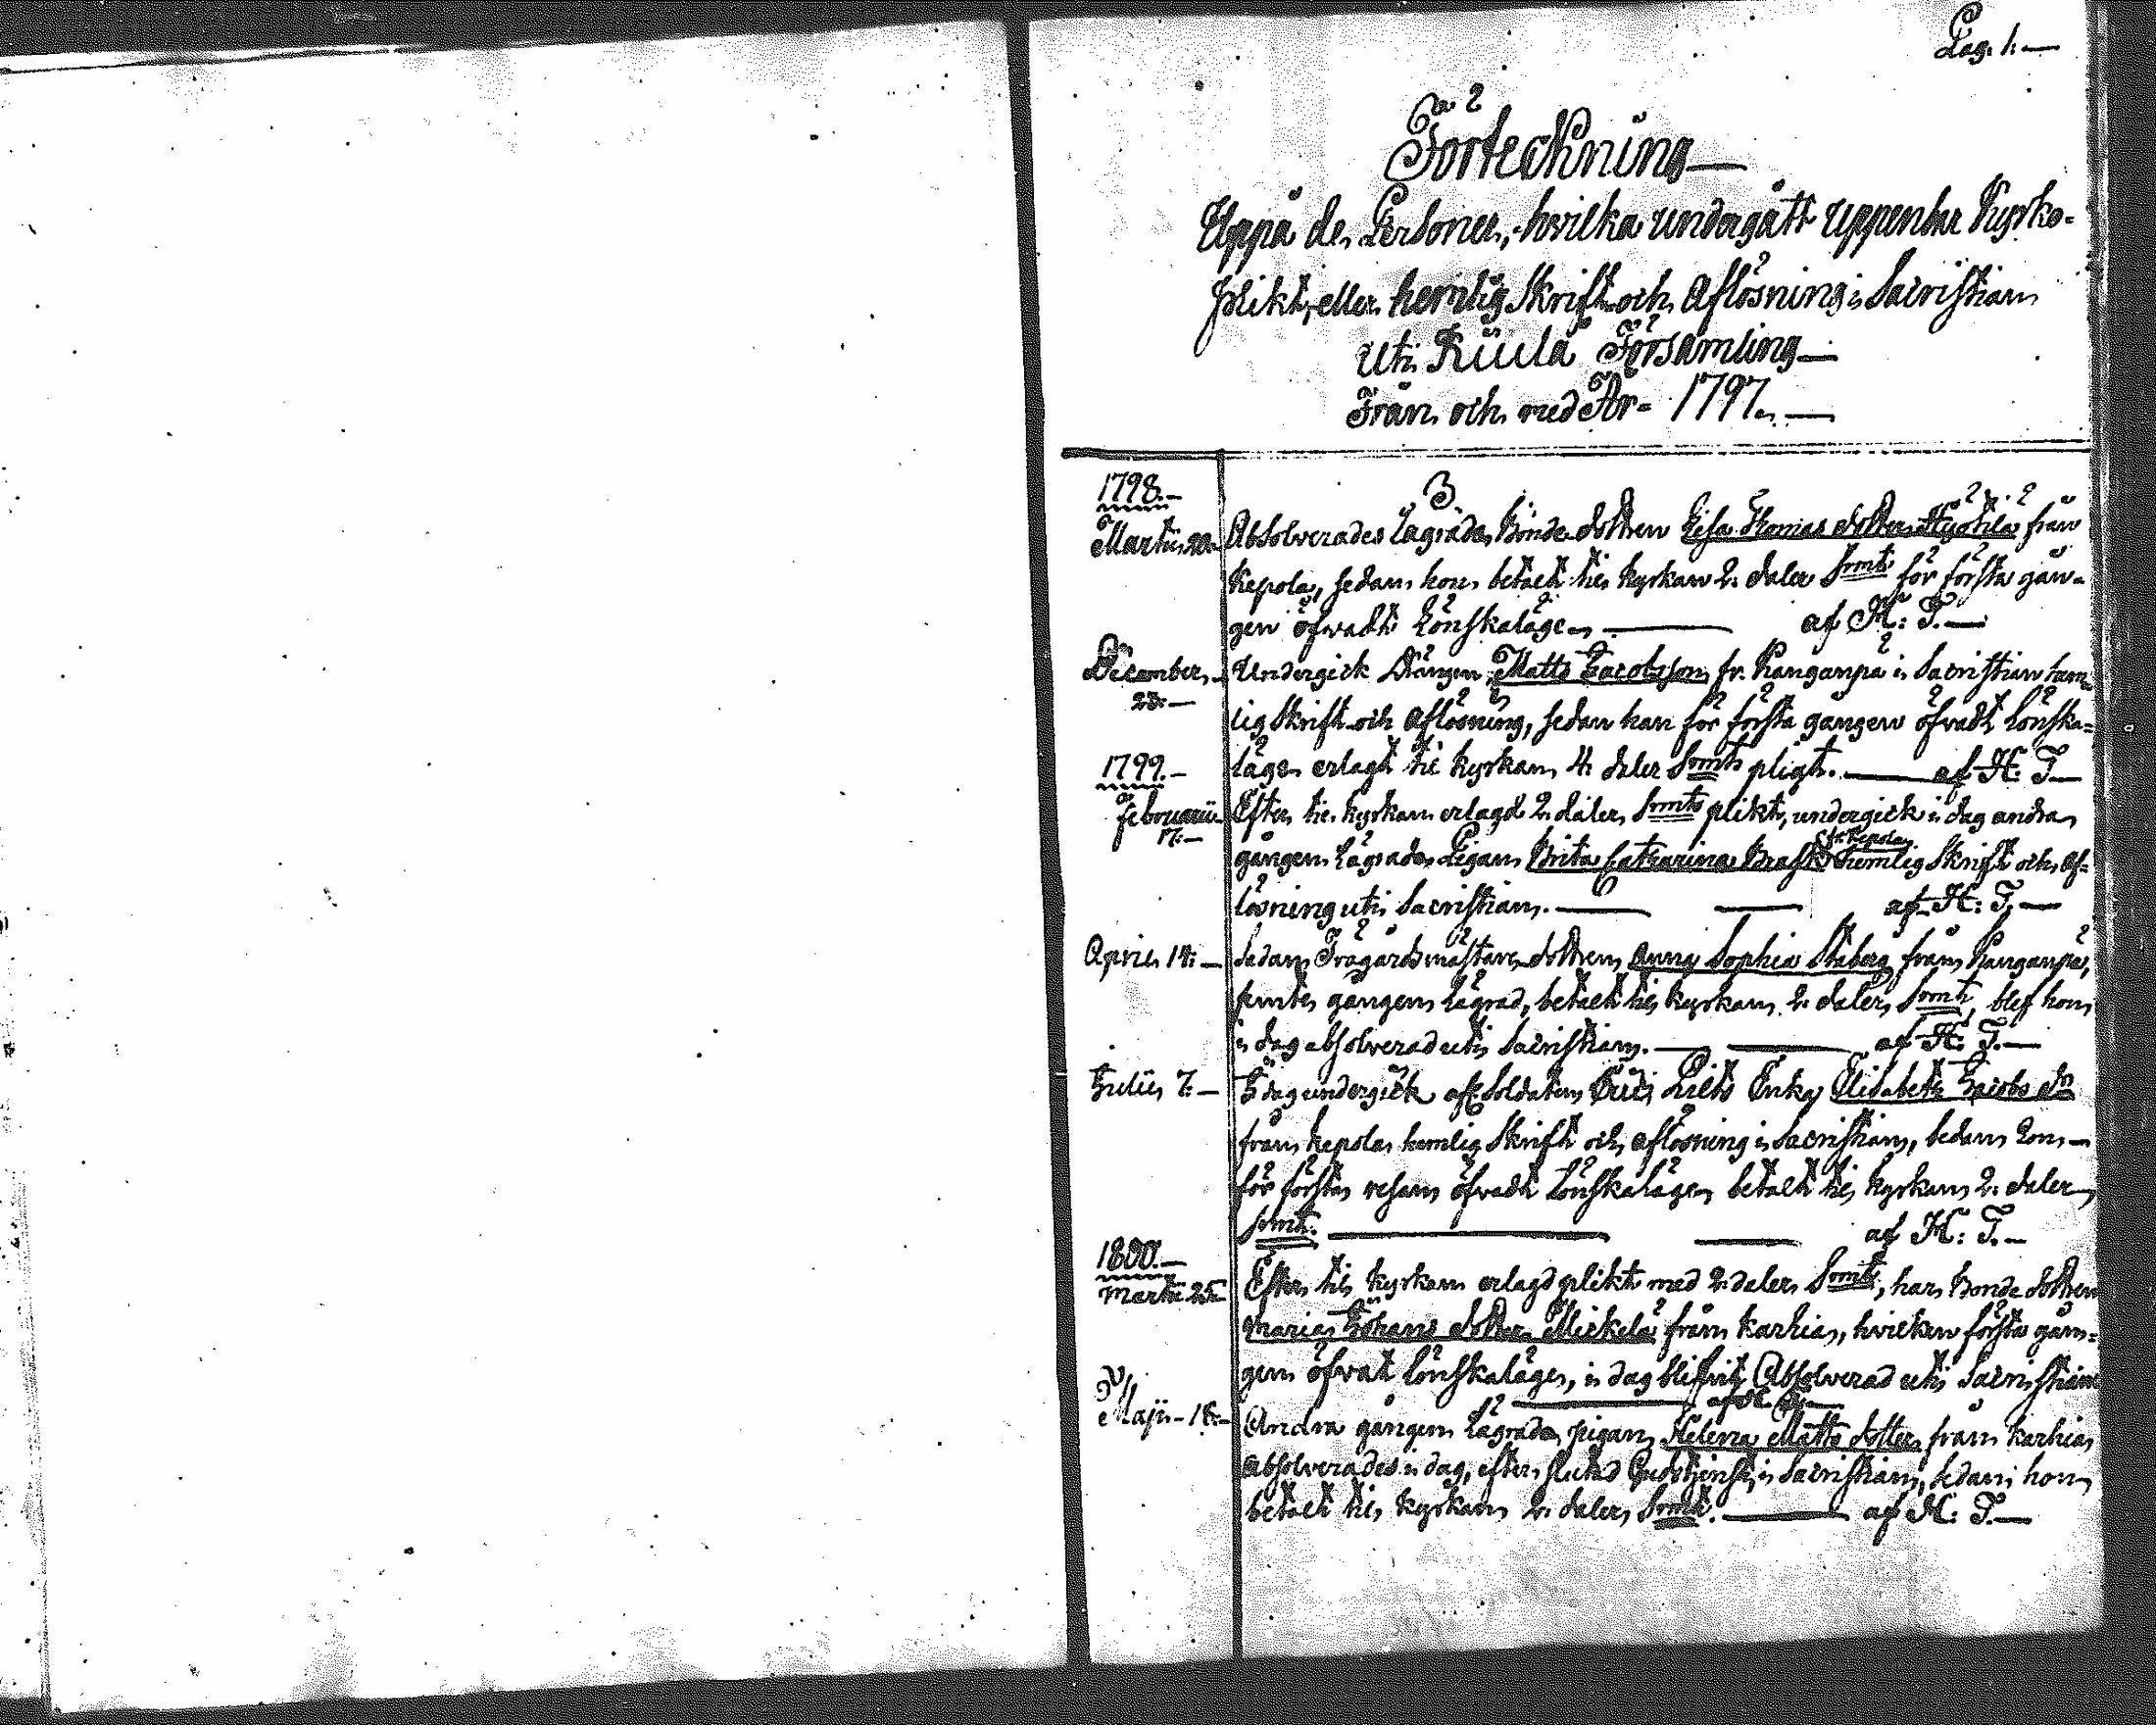 Pag. 1.
Förteckning
Uppå de Personer, hvilka undergått uppenbar Kyrko-
plikt, eller hemlig Skrift och Aflösning i Sacristian
uti Kiula Församling
Från och med År 1797.
1798.
Martii 20. Absolverades lägrade Bonde dottren Lisa Thomas dotter från
Kepola, sedan hon betalt til kyrkan 2. daler Smt för första gån-
gen öfvadt Lönskaläge. af H: T.
December 23. Undergick Drängen Matts Jacobsson fr. Kanganpä i Sacristian hem-
lig Skrift och Aflösning, sedan han för första gången öfvadt Lönska-
läge erlagt til kyrkan 4 daler Smt pligt. af H: T.
1799.
Februarii 17. Efter til kyrkan erlagd 2. daler Smt plikt, undergick i dag andra
gången Lägrade Pigan Brita Catharina Brask fr. Kepola hemlig Skrift och Af-
lösning uti Sacristian. af H: T.
April 14. Sedan Trägårdsmästare dottren Anna Sophia Staberg från Kanganpä,
gången Lägrad, betalt til kyrkan 2. daler Smt, blef hon
i dag absolverad uti Sacristian. af H: T.
Julii 7. I dag undergick afl. Soldaten Enka Elisabeth Jacobs dr
från Kepola hemlig Skrift och aflösning i Sacristian, sedan hon
för första resan öfvadt Lönskaläge, betalt til kyrkan 2. daler
Smt. af H: T.
1800.
Martii 25. Efter til kyrkan erlagd plikt med 2. daler Smt, har Bonde dottren
Maria Johans dotter Mickelä från Karhia, hvilken första gån-
gen öfvat Lönskaläge, i dag blifvit Absolverad uti Sacristian
af H: T.
Maji 18. Andra gången Lägrade pigan Helena Matts dotter från Karhia
absolverades i dag, efter slutad Gudstjenst, i Sacristian, sedan hon
betalt til kyrkan 2. daler Smt. af H: T.